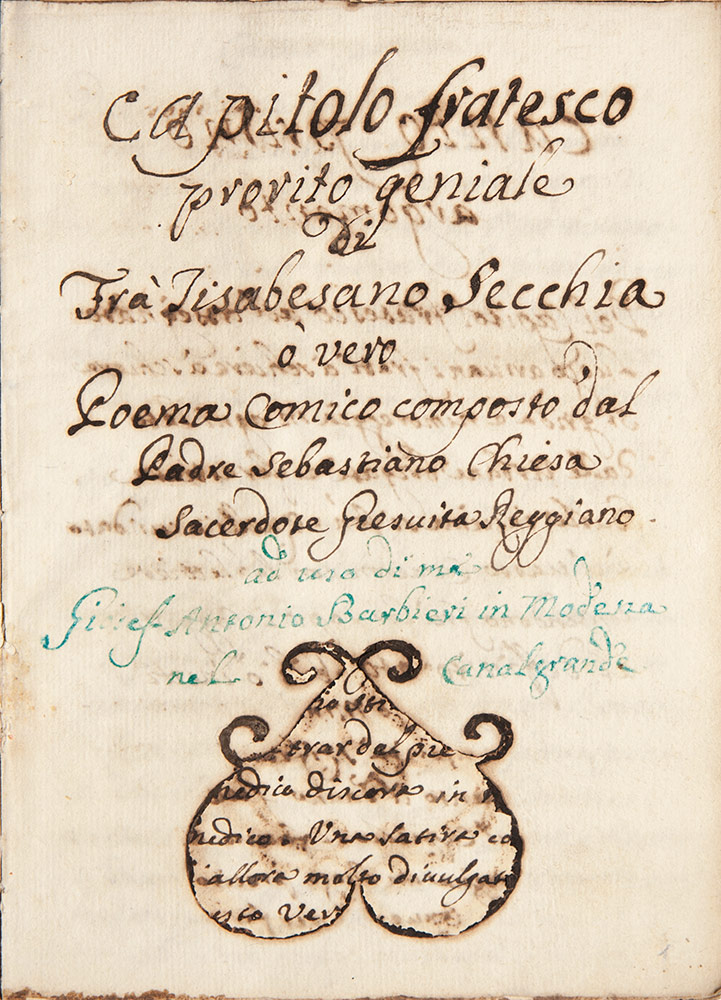 Capitolo fratesco
prorito geniale
Di
Frà Tisabesano Secchia
ò vero
Poema Comico composto dal
Padre Sebastiano Chiesa
Sacerdote Gesuita Reggiano.
ad uso di me
Giusef. Antonio Barbieri in Modena
nel Canalgrande
no sti
trar dal pie
medico discorre in
medico. Una satira co
allora molto divulgat
esto Ver